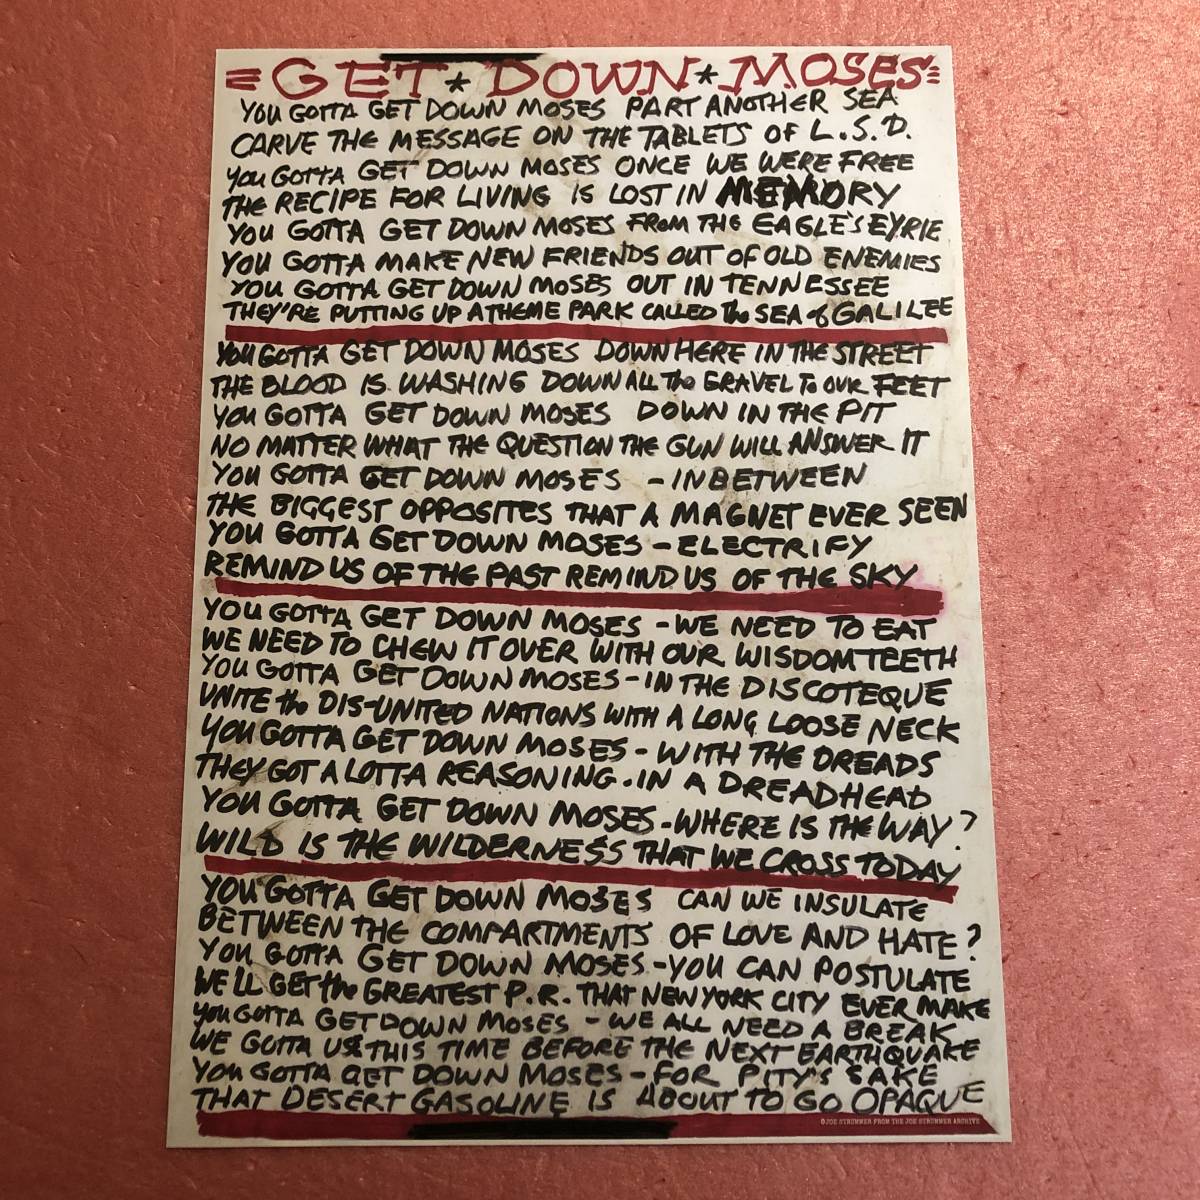 GET * DOWN * MOSES
YOU GOTTA GET DOWN MOSES PART ANOTHER SEA
CARVE THE MESSAGE ON THE TABLETS OF L.S.D.
YOU GOTTA GET DOWN MOSES ONCE WE WERE FREE
THE RECIPE FOR LIVING IS LOST IN MEMORY
YOU GOTTA GET DOWN MOSES FROM THE EAGLE'S EYRIE
YOU GOTTA MAKE NEW FRIENDS OUT OF OLD ENEMIES
YOU GOTTA GET DOWN MOSES OUT IN TENNESSEE
THEY'RE PUTTING UP A THEME PARK CALLED the SEA of GALILEE
YOU GOTTA GET DOWN MOSES DOWN HERE IN THE STREET
THE BLOOD IS WASHING DOWN ALL The GRAVEL To OUR FEET
YOU GOTTA GET DOWN MOSES DOWN IN THE PIT
NO MATTER WHAT THE QUESTION THE GUN WILL ANSWER IT
YOU GOTTA GET DOWN MOSES - INBETWEEN
THE BIGGEST OPPOSITES THAT A MAGNET EVER SEEN
YOU GOTTA GET DOWN MOSES - ELECTRIFY
REMIND US OF THE PAST REMIND US OF THE SKY
YOU GOTTA GET DOWN MOSES - WE NEED TO EAT
WE NEED TO CHEW IT OVER WITH OUR WISDOM TEETH
YOU GOTTA GET DOWN MOSES - IN THE DISCOTEQUE
UNITE the DIS-UNITED NATIONS WITH A LONG LOOSE NECK
YOU GOTTA GET DOWN MOSES - WITH THE DREADS
THEY GOT A LOTTA REASONING. IN A DREADHEAD
YOU GOTTA GET DOWN MOSES - WHERE IS THE WAY?
WILD IS THE WILDERNESS THAT WE CROSS TODAY
YOU GOTTA GET DOWN MOSES CAN WE INSULATE
BETWEEN THE COMPARTMENTS OF LOVE AND HATE?
YOU GOTTA GET DOWN MOSES - YOU CAN POSTULATE
WE'LL GET the GREATEST P.R. THAT NEW YORK CITY EVER MAKE
YOU GOTTA GET DOWN MOSES - WE ALL NEED A BREAK
WE GOTTA USE THIS TIME BEFORE THE NEXT EARTHQUAKE
YOU GOTTA GET DOWN MOSES - FOR PITY'S SAKE
THAT DESERT GASOLINE IS ABOUT TO GO OPAQUE
©JOE STRUMMER FROM THE JOE STRUMMER ARCHIVE